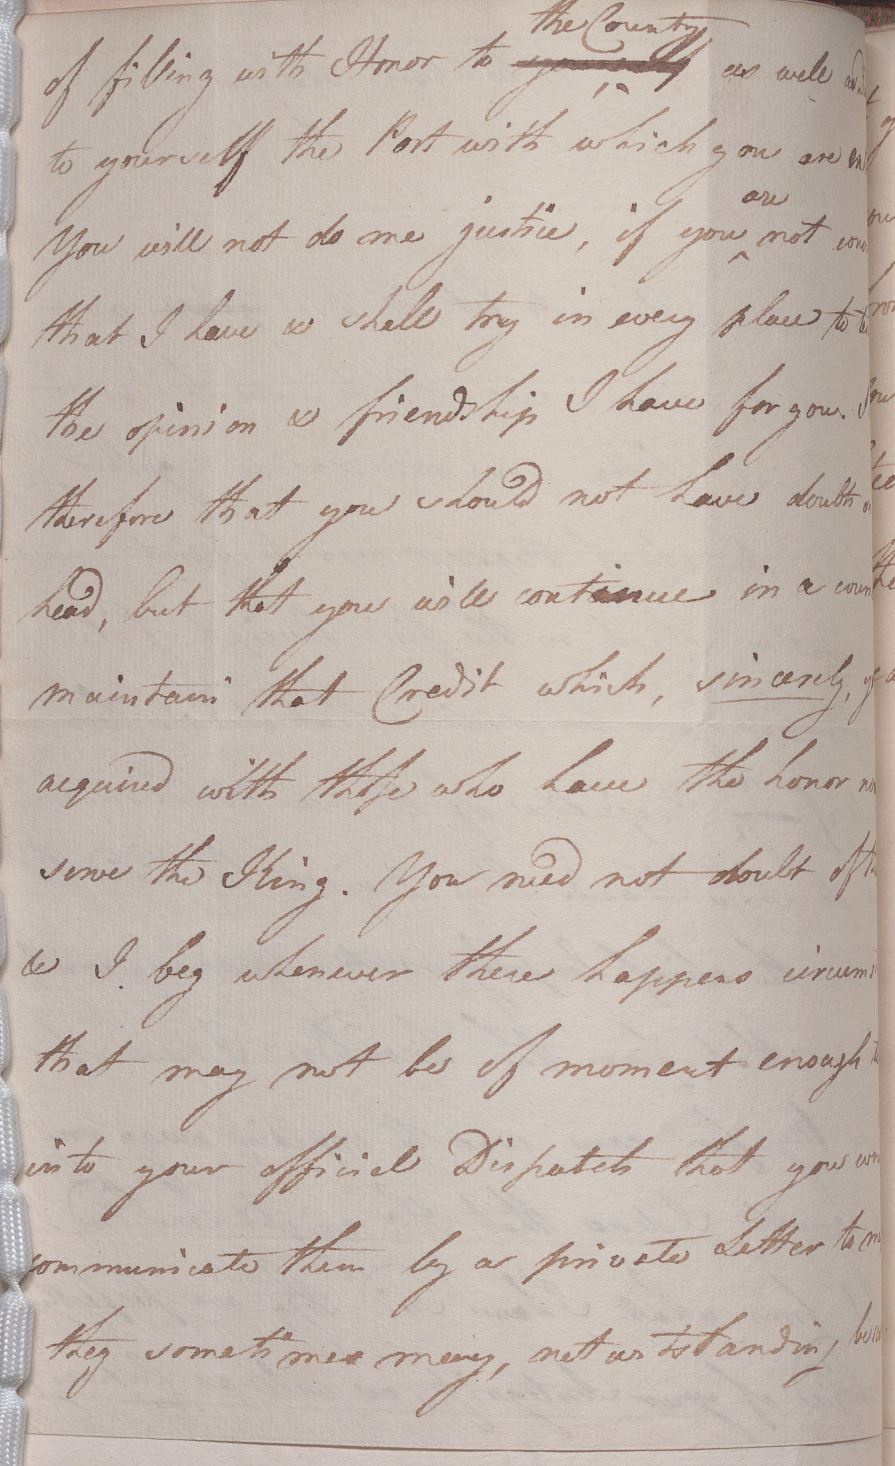 the County
of filling with Honor to yourself as well as
to yourself the Post with which you are
are
You will not do me justice, if you ^ not
that I have & shall try in every place to
the opinion & friendship I have for you.
therefore that you should not have doubts
head, but that you will continue in a
maintain that Credit which, sincerely,
acquired with those who have the honor
serve the King. You need not doubt of
& I beg whenever there happens
that may not be of moment enough
into your official Dispatch that you
communicate them by a private Letter to
they sometimes may, notwithstanding